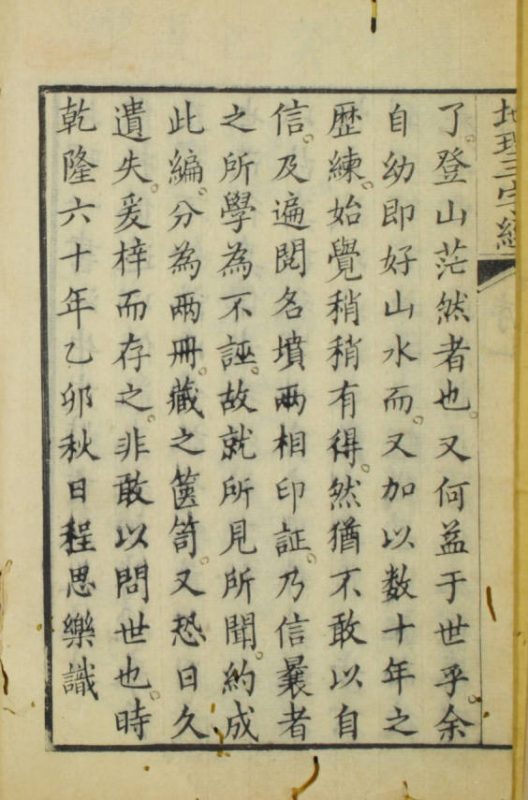 地理三字經
了登山茫然者也。又何益于世乎。余
自幼即好山水。而又加以数十年之
歴練。始覺稍稍有得。然猶不敢以自
信。及遍閱名墳。兩相印証。乃信曩者
之所學為不誣。故就所見所聞。約成
此編。分為兩冊。藏之篋笥。又恐日久
遺失。爰梓而存之。非敢以問世也。時
乾隆六十年乙卯秋日程思樂識